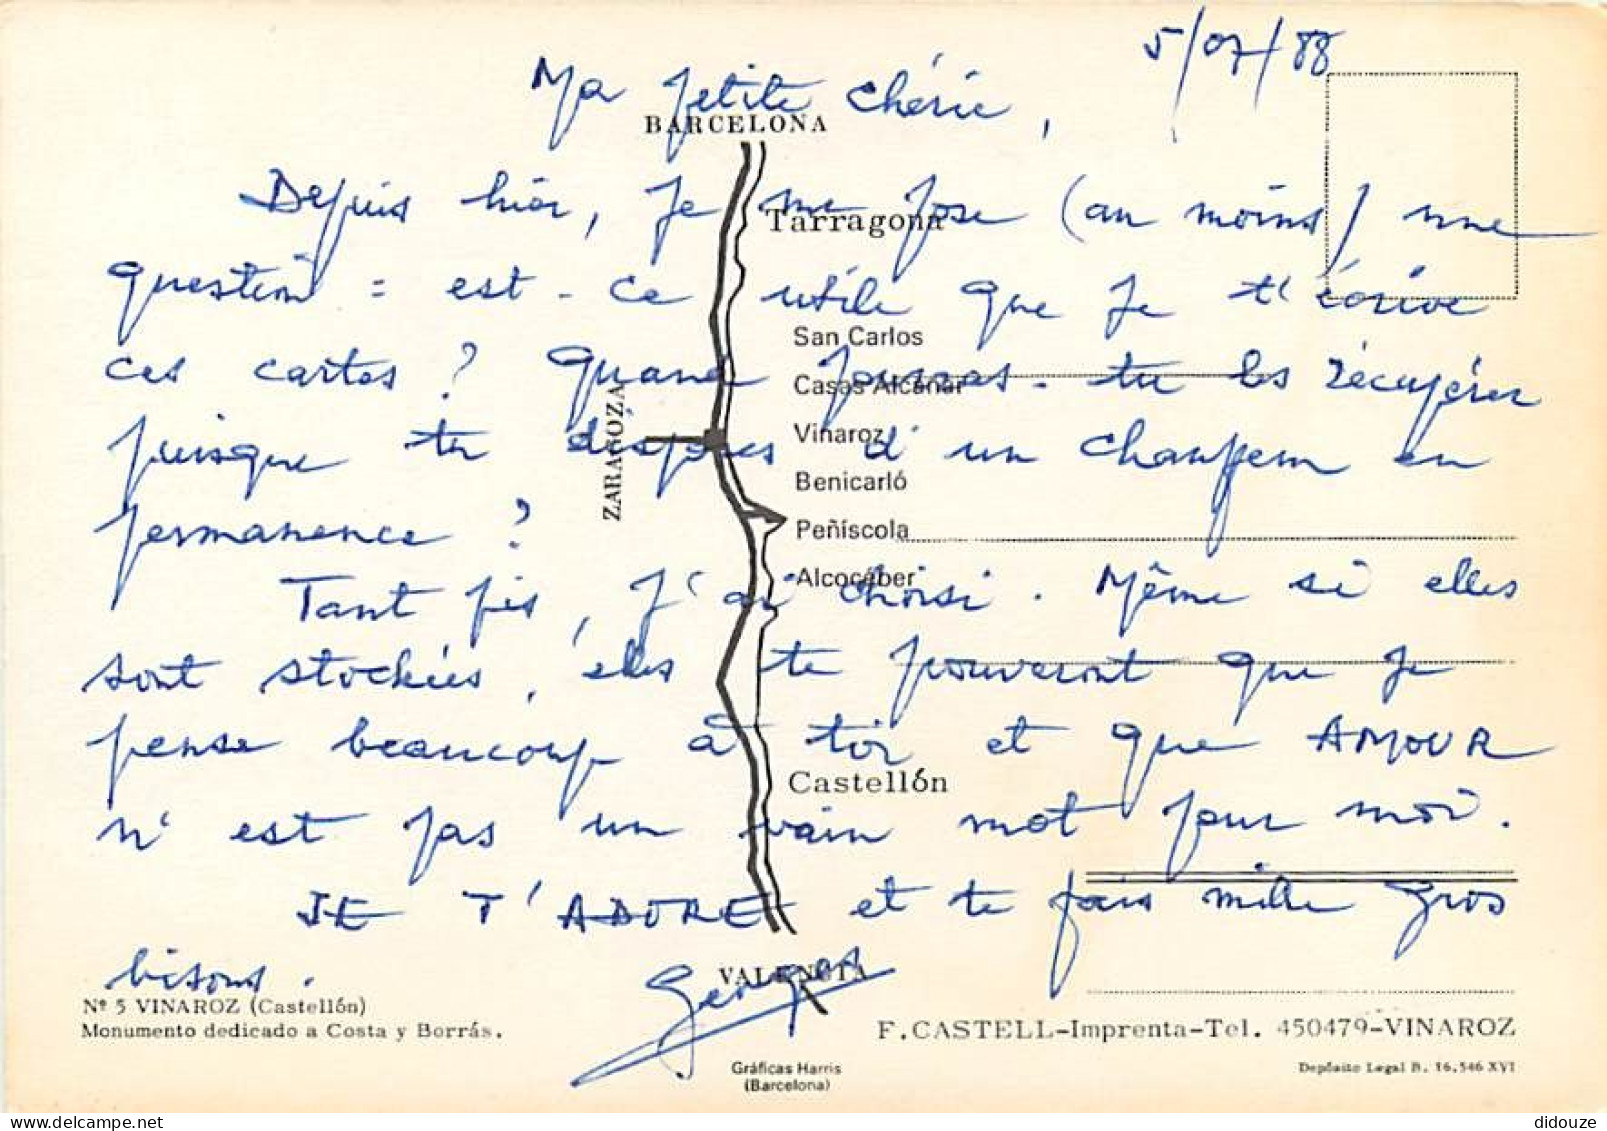 5/07/88
Ma petite chérie,
BARCELONA
Depuis hier, je me pose (au moins) une
Tarragona
question : est-ce utile que je t'écrive
San Carlos
ces cartes ? Quand pourras-tu les récupérer
Casas Alcanar
ZARAGOZA
puisque tu disposes d'un chauffeur en
Vinaroz
Benicarló
permanence ?
Peñíscola
Tant pis, j'ai choisi. Même si elles
Alcocéber
sont stockées, elles te prouveront que je
pense beaucoup à toi et que AMOUR
Castellón
n'est pas un vain mot pour moi.
JE T'ADORE et te fais mille gros
bisous.
Georges
VALENCIA
Nº 5 VINAROZ (Castellón)
Monumento dedicado a Costa y Borrás.
F. CASTELL-Imprenta-Tel. 450479-VINAROZ
Gráficas Harris
(Barcelona)
Depósito Legal B. 16.546 XVI
didouze